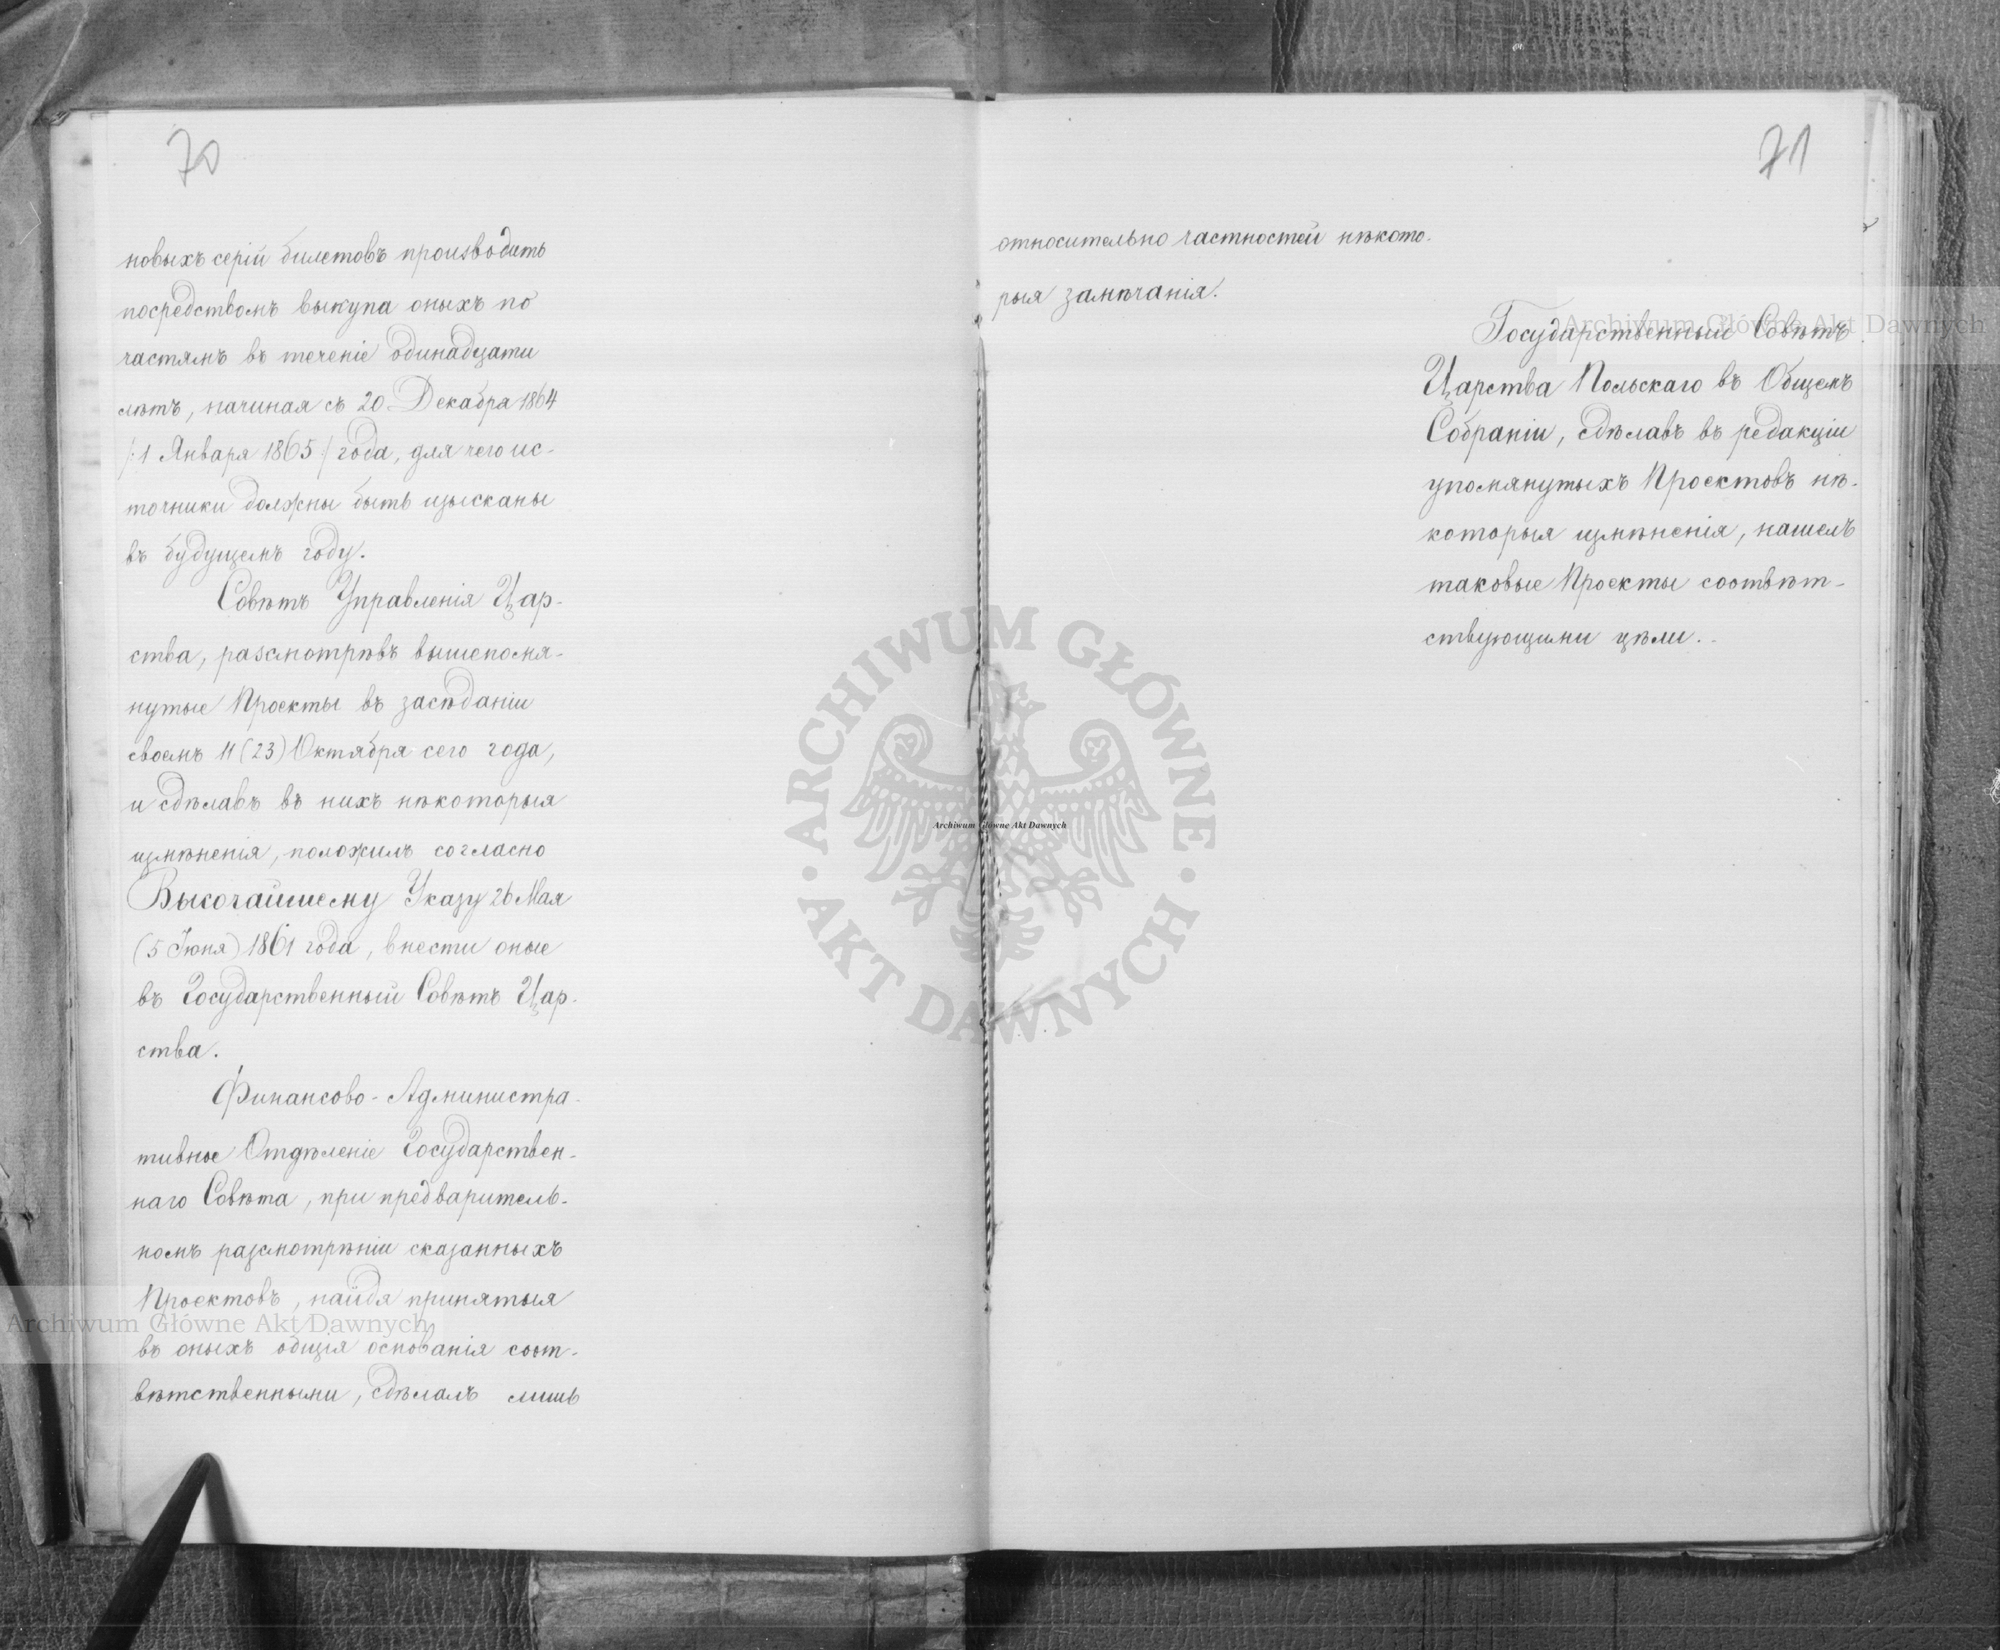 70
новыхъ серій билетовъ производить
посредствомъ выкупа оныхъ по
частямъ въ теченіе одинадцати
лѣтъ, начиная съ 20 Декабря 1864
/:1 Января 1865:/ года, для чего ис-
точники должны быть изысканы
въ будущемъ году.
Совѣтъ Управленія Цар-
ства, разсмотрѣвъ вышепомя-
нутые Проекты въ засѣданіи
своемъ 11 (23) Октября сего года,
и сдѣлавъ въ нихъ нѣкоторыя
измѣненія, положилъ согласно
Высочайшему Указу 26 Мая
(5 Іюня) 1861 года, внести оные
въ Государственный Совѣтъ Цар-
ства.
Финансово-Администра-
тивное Отдѣленіе Государствен-
наго Совѣта, при предваритель-
номъ разсмотрѣніи сказанныхъ
Проектовъ, найдя принятыя
въ оныхъ общія основанія соот-
вѣтственными, сдѣлалъ лишь
71
относительно частностей нѣкото-
рыя замѣчанія.
Государственный Совѣтъ
Царства Польскаго въ Общемъ
Собраніи, сдѣлавъ въ редакціи
упомянутыхъ Проектовъ нѣ-
которыя измѣненія, нашелъ
таковые Проекты соотвѣт-
ствующими цѣли.
Archiwum Główne Akt Dawnych
Archiwum Główne Akt Dawnych
Archiwum Główne Akt Dawnych
ARCHIWUM GŁÓWNE
AKT DAWNYCH